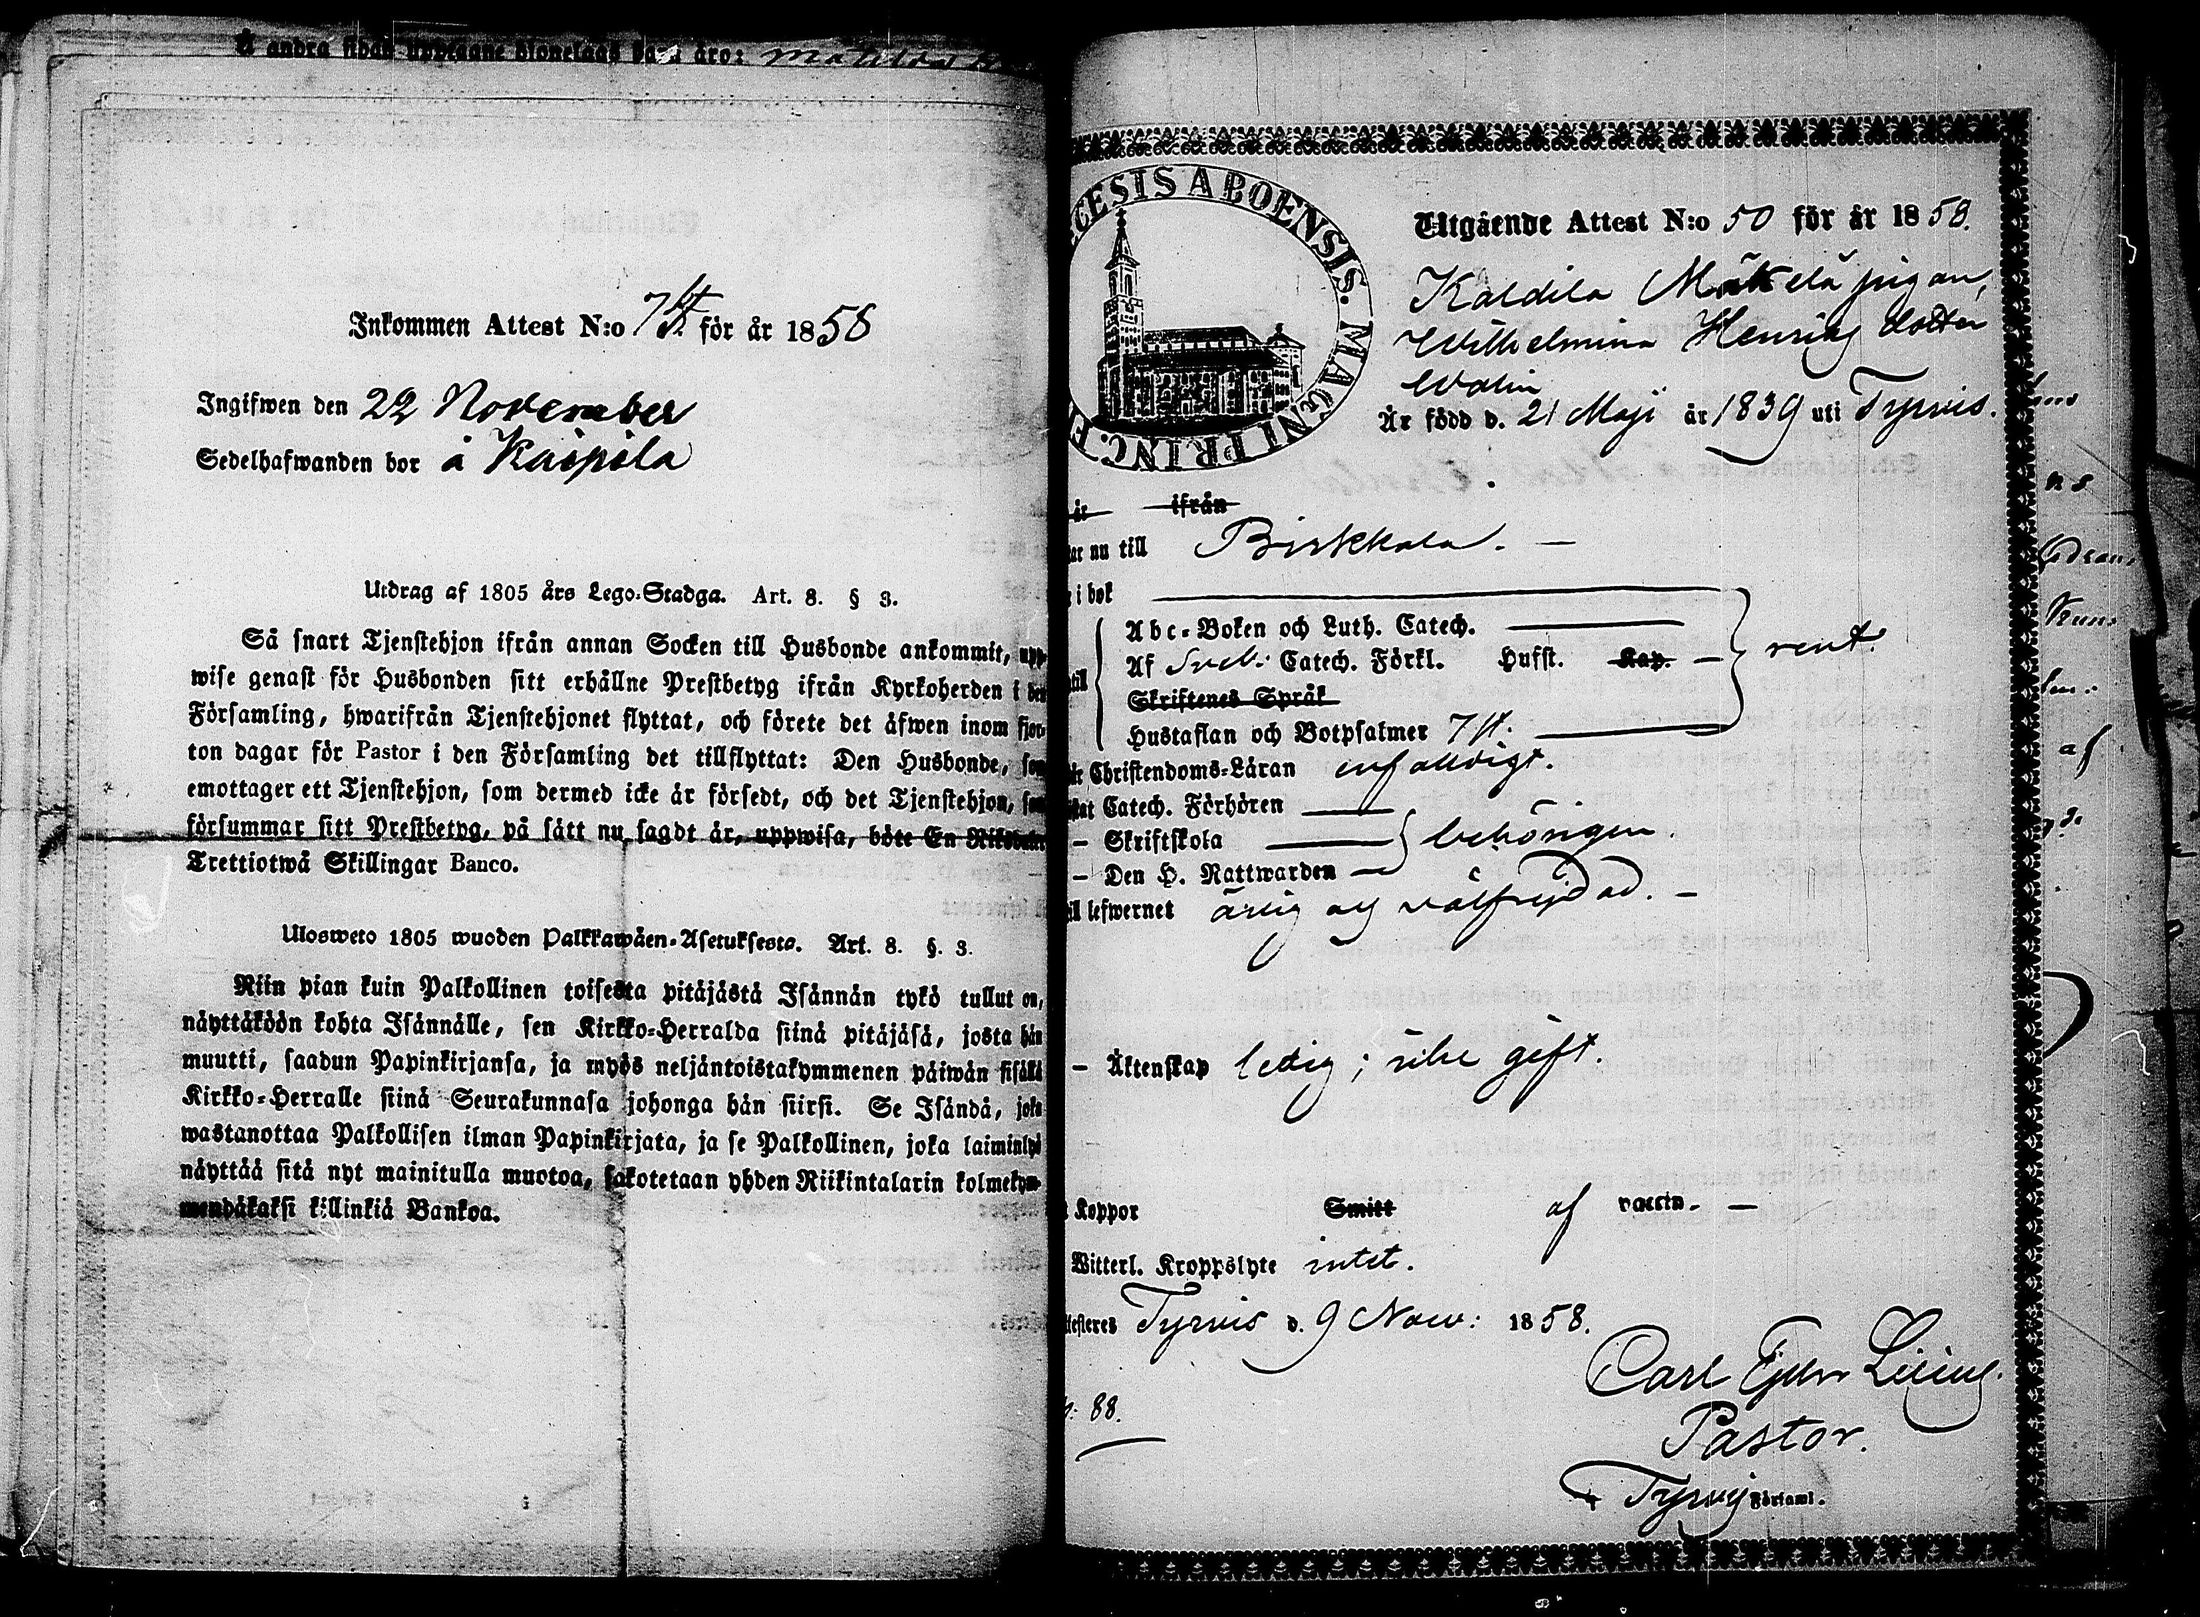 å andra sidan upptagne tjonelags barn äro: Matilda
Inkommen Attest N:o 75 för år 1858
Ingifwen den 22 November
Sedelhafwanden bor å Kaipila
Utdrag af 1805 års Lego-Stadga. Art. 8. § 3.
Så snart Tjenstehjon ifrån annan Socken till Husbonde ankommit, upp-
wise genast för Husbonden sitt erhållne Prestbetyg ifrån Kyrkoherden i den
Församling, hwarifrån Tjenstehjonet flyttat, och förete det äfwen inom fjor-
ton dagar för Pastor i den Församling det tillflyttat: Den Husbonde, som
emottager ett Tjenstehjon, som dermed icke är försedt, och det Tjenstehjon, som
försummar sitt Prestbetyg, på sätt nu sagdt är, uppwisa, böte En Riksdaler
Trettiotwå Skillingar Banco.
Ulosweto 1805 wuoden Palkkawäen-Asetuksesta. Art. 8. §. 3.
Niin pian kuin Palkollinen toisesta pitäjästä Isännän tykö tullut on,
näyttäköön kohta Isännälle, sen Kirkko-Herralda siinä pitäjäsä, josta hän
muutti, saadun Papinkirjansa, ja myös neljäntoistakymmenen päiwän sisällä
Kirkko-Herralle siinä Seurakunnasa johonga hän siirsi. Se Isändä, joka
wastanottaa Palkollisen ilman Papinkirjata, ja se Palkollinen, joka laiminlyö
näyttää sitä nyt mainitulla muotoa, sakotetaan yhden Riikintalarin kolmekym-
mendäkaksi killinkiä Bankoa.
CESIS ABOENSIS. MAGNI PRINC. F
Utgående Attest N:o 50 för år 1858.
Kaldila Mäkelä pigan,
Wilhelmina Henriks dotter
Walin
Är född d. 21 Maji år 1839 uti Tyrvis.
år ifrån
ar nu till Birkkala. —
i bok
Abc-Boken och Luth. Catech.
till Af Sveb. Catech. Förkl. Hufst. Kap. — rent.
Skriftenes Språk
Hustaflan och Botpsalmer 7 st.
Christendoms-Läran enfaldigt.
Catech. Förhören
— Skriftskola behörigen.
— Den H. Nattwarden
ill lefwernet ärlig och välfrejdad. —
— Äktenskap ledig; icke gift.
Koppor Smitt af vaccin. —
Witterl. Kroppslyte intet.
esteres Tyrvis d. 9 Nov: 1858.
Carl
Pastor.
88.
Tyrvis Församl.